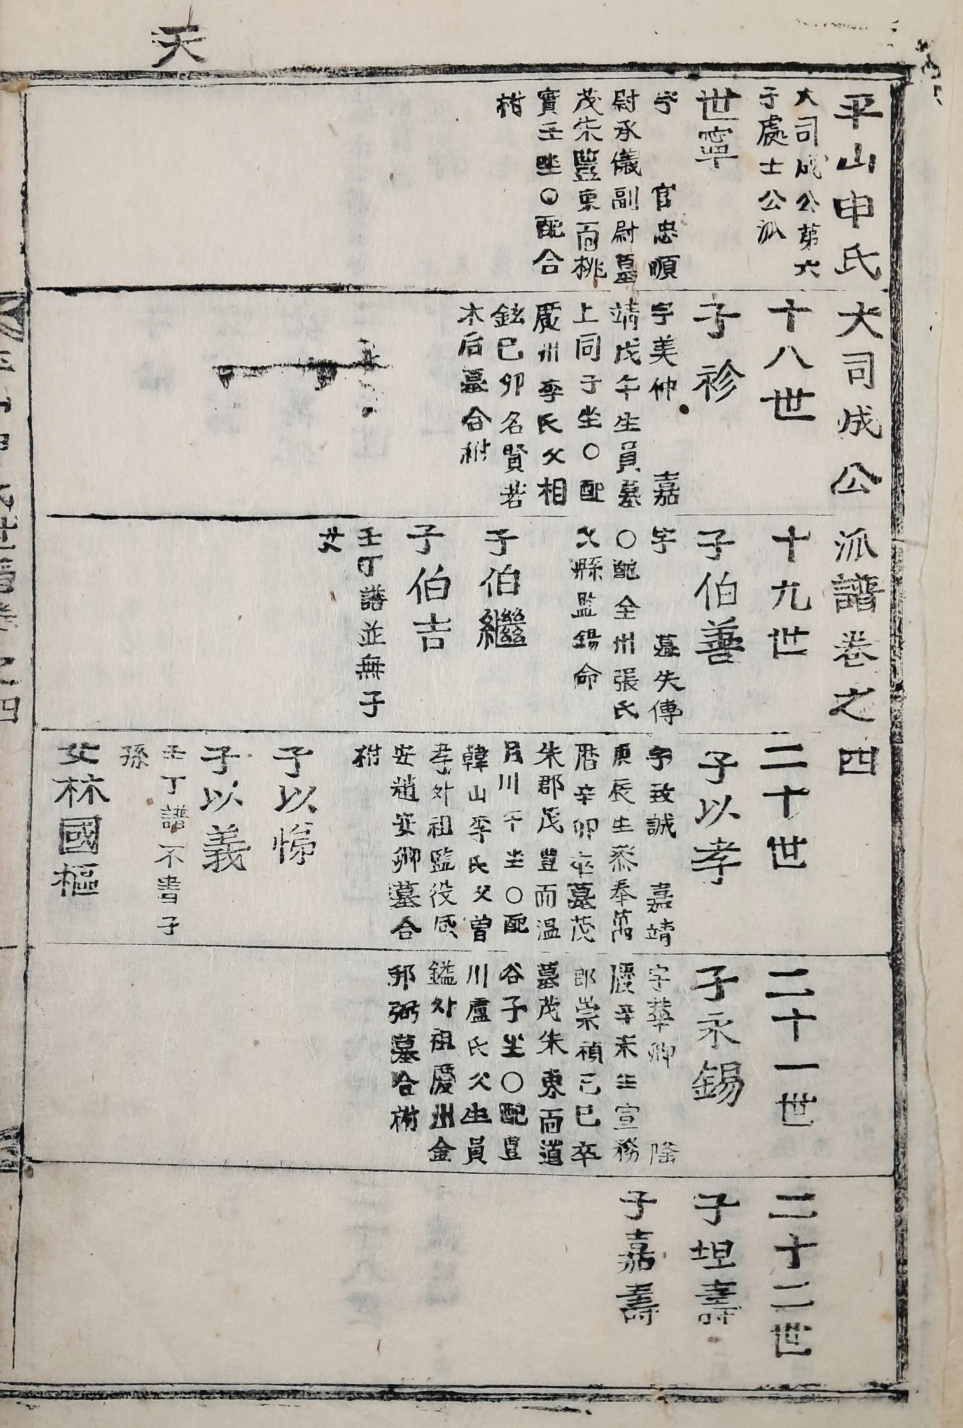 天
平山申氏大司成公派譜卷之四
大司成公第六
子處士公派
世寧
字 官忠順
尉承儀副尉墓
茂朱豐東面桃
實壬坐○配合
祔
十八世
子袗
字美仲 嘉
靖戊午生員墓
上同子坐○配
廣州李氏父相
鉉己卯名賢若
木后墓合祔
十九世
子伯善
字 墓失傳
○配全州張氏
父縣監錫命
子伯繼
子伯吉
壬丁譜並無子
女
二十世
子以孝
字致誠 嘉靖
庚辰生叅奉萬
曆辛卯卒墓茂
朱郡茂豊面温
月川子坐○配
韓山李氏父曾
孝外祖監役咸
安趙安卿墓合
祔
子以悌
子以義
壬丁譜不書子
孫
女林國樞
二十一世
子永錫
字華卿 隆
慶辛未生宣務
郎崇禎己巳卒
墓茂朱東面道
谷子坐○配豊
川盧氏父生員
鎰外祖慶州金
邦弼墓合祔
二十二世
子坦壽
子嘉壽